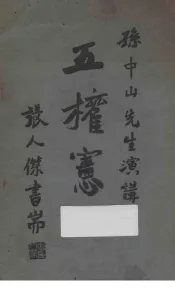 孫中山先生演講
五權憲
張人傑書耑